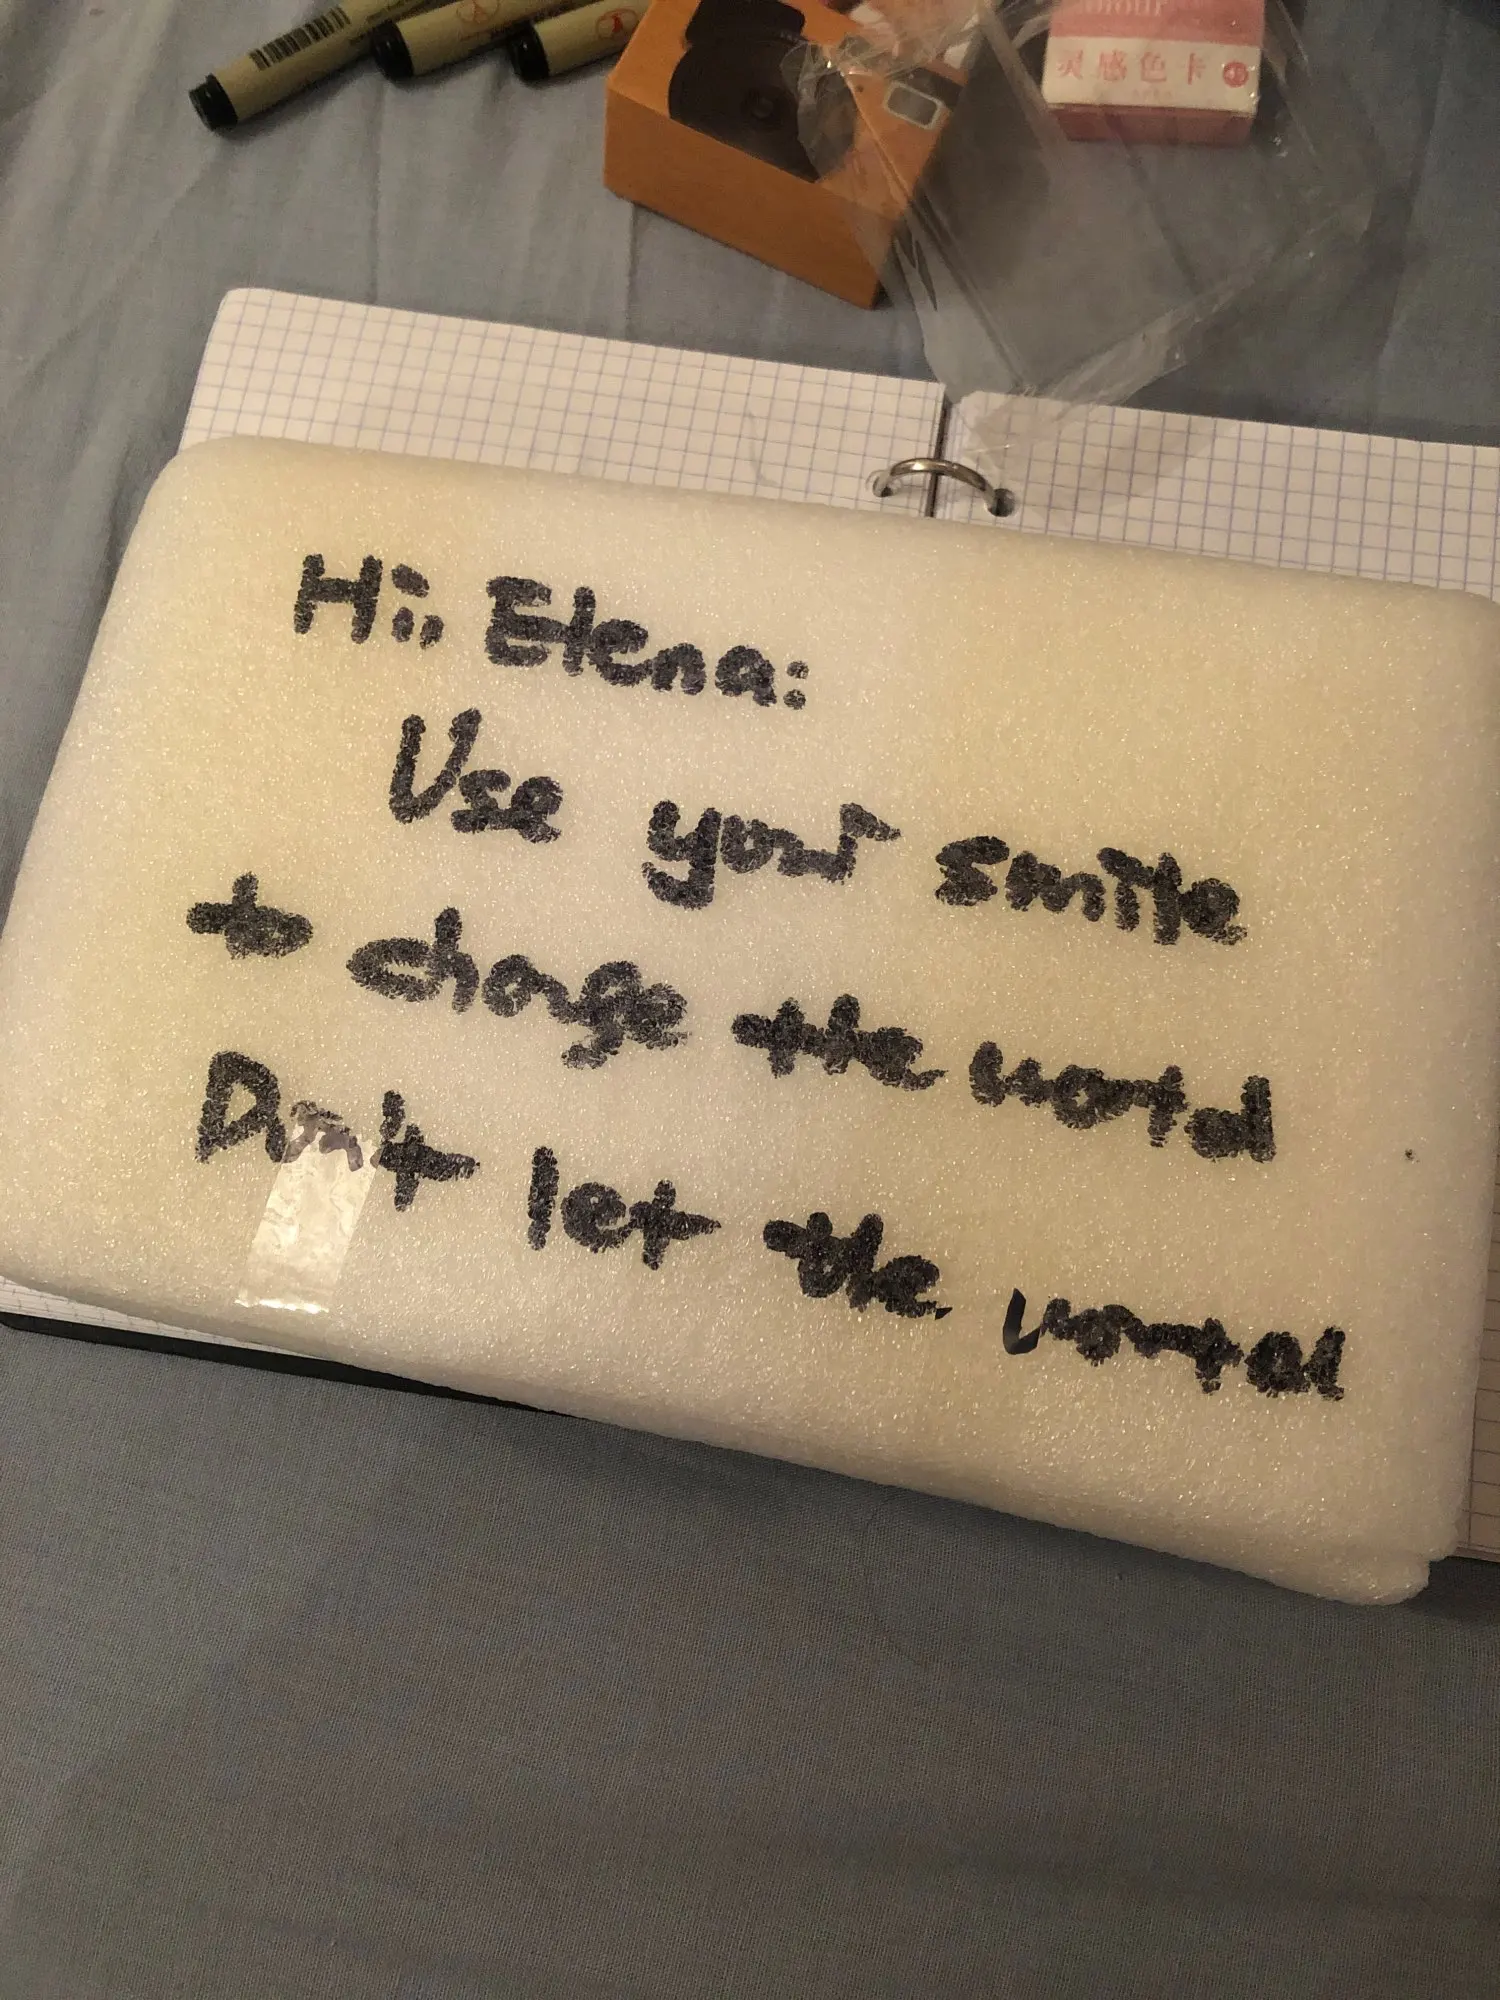 灵感色卡
Hi, Elena:
Use your smile
to change the world
Don't let the world